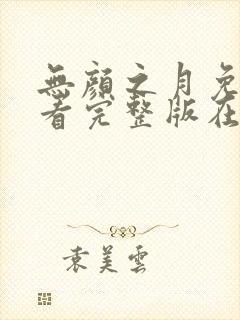 無顏之月免
看完整版在
袁美雲